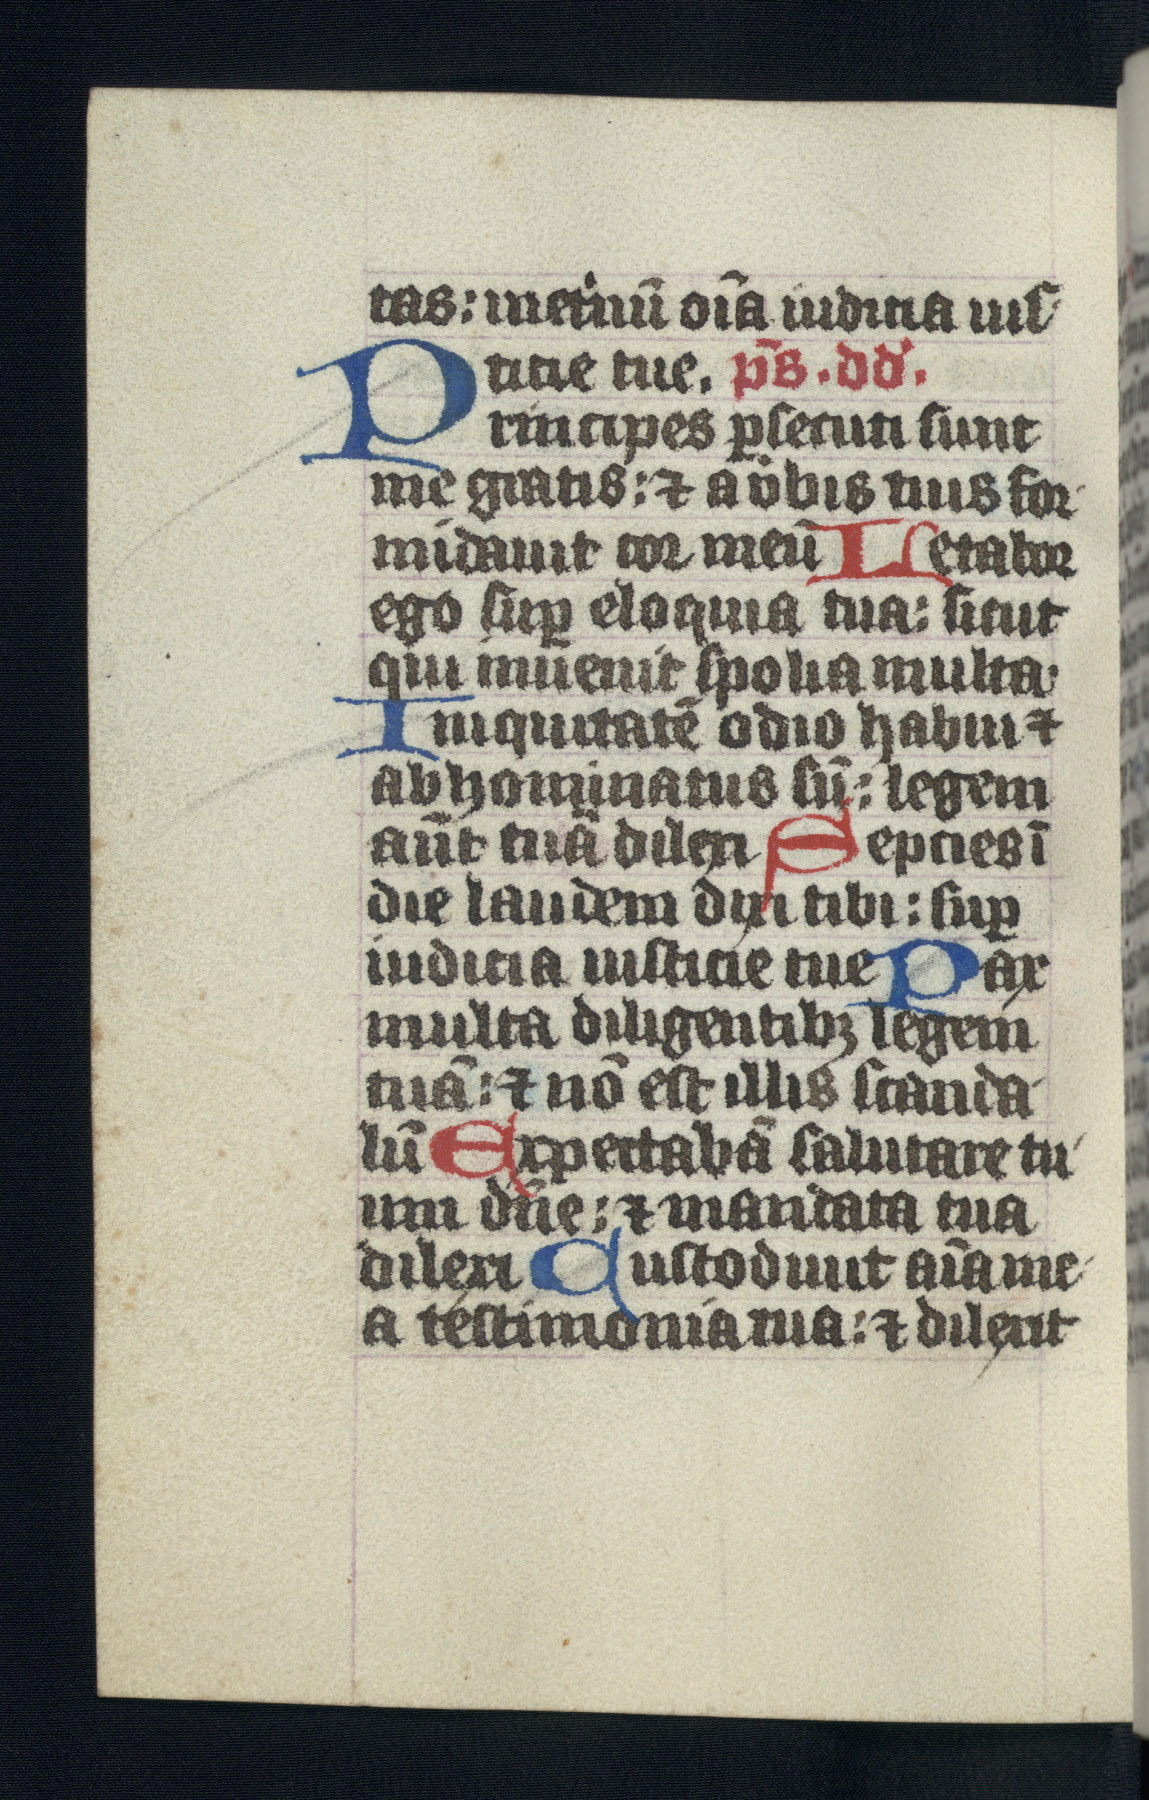 tas: met̾nū oīa iudicia ius
ticie tue. p̄s. dd̾.
Principes ꝑsecuti sunt
me gratis: ⁊ a v̾bis tuis for
midauit cor meū Letabor
ego suꝑ eloquia tua: sicut
qui inuenit spolia multa.
Iniquitatē odio habui ⁊
abhominatus sū: legem
aūt tuā dilexi Sepcies ī
die laudem dixi tibi: suꝑ
iudicia iusticie tue Pax
multa diligentibꝫ legem
tuā: ⁊ nō est illis scanda
lū Expectabā salutare tu
um dn̄e: ⁊ mandata tua
dilexi Custodiuit aīa me
a testimonia tua: ⁊ dilexit